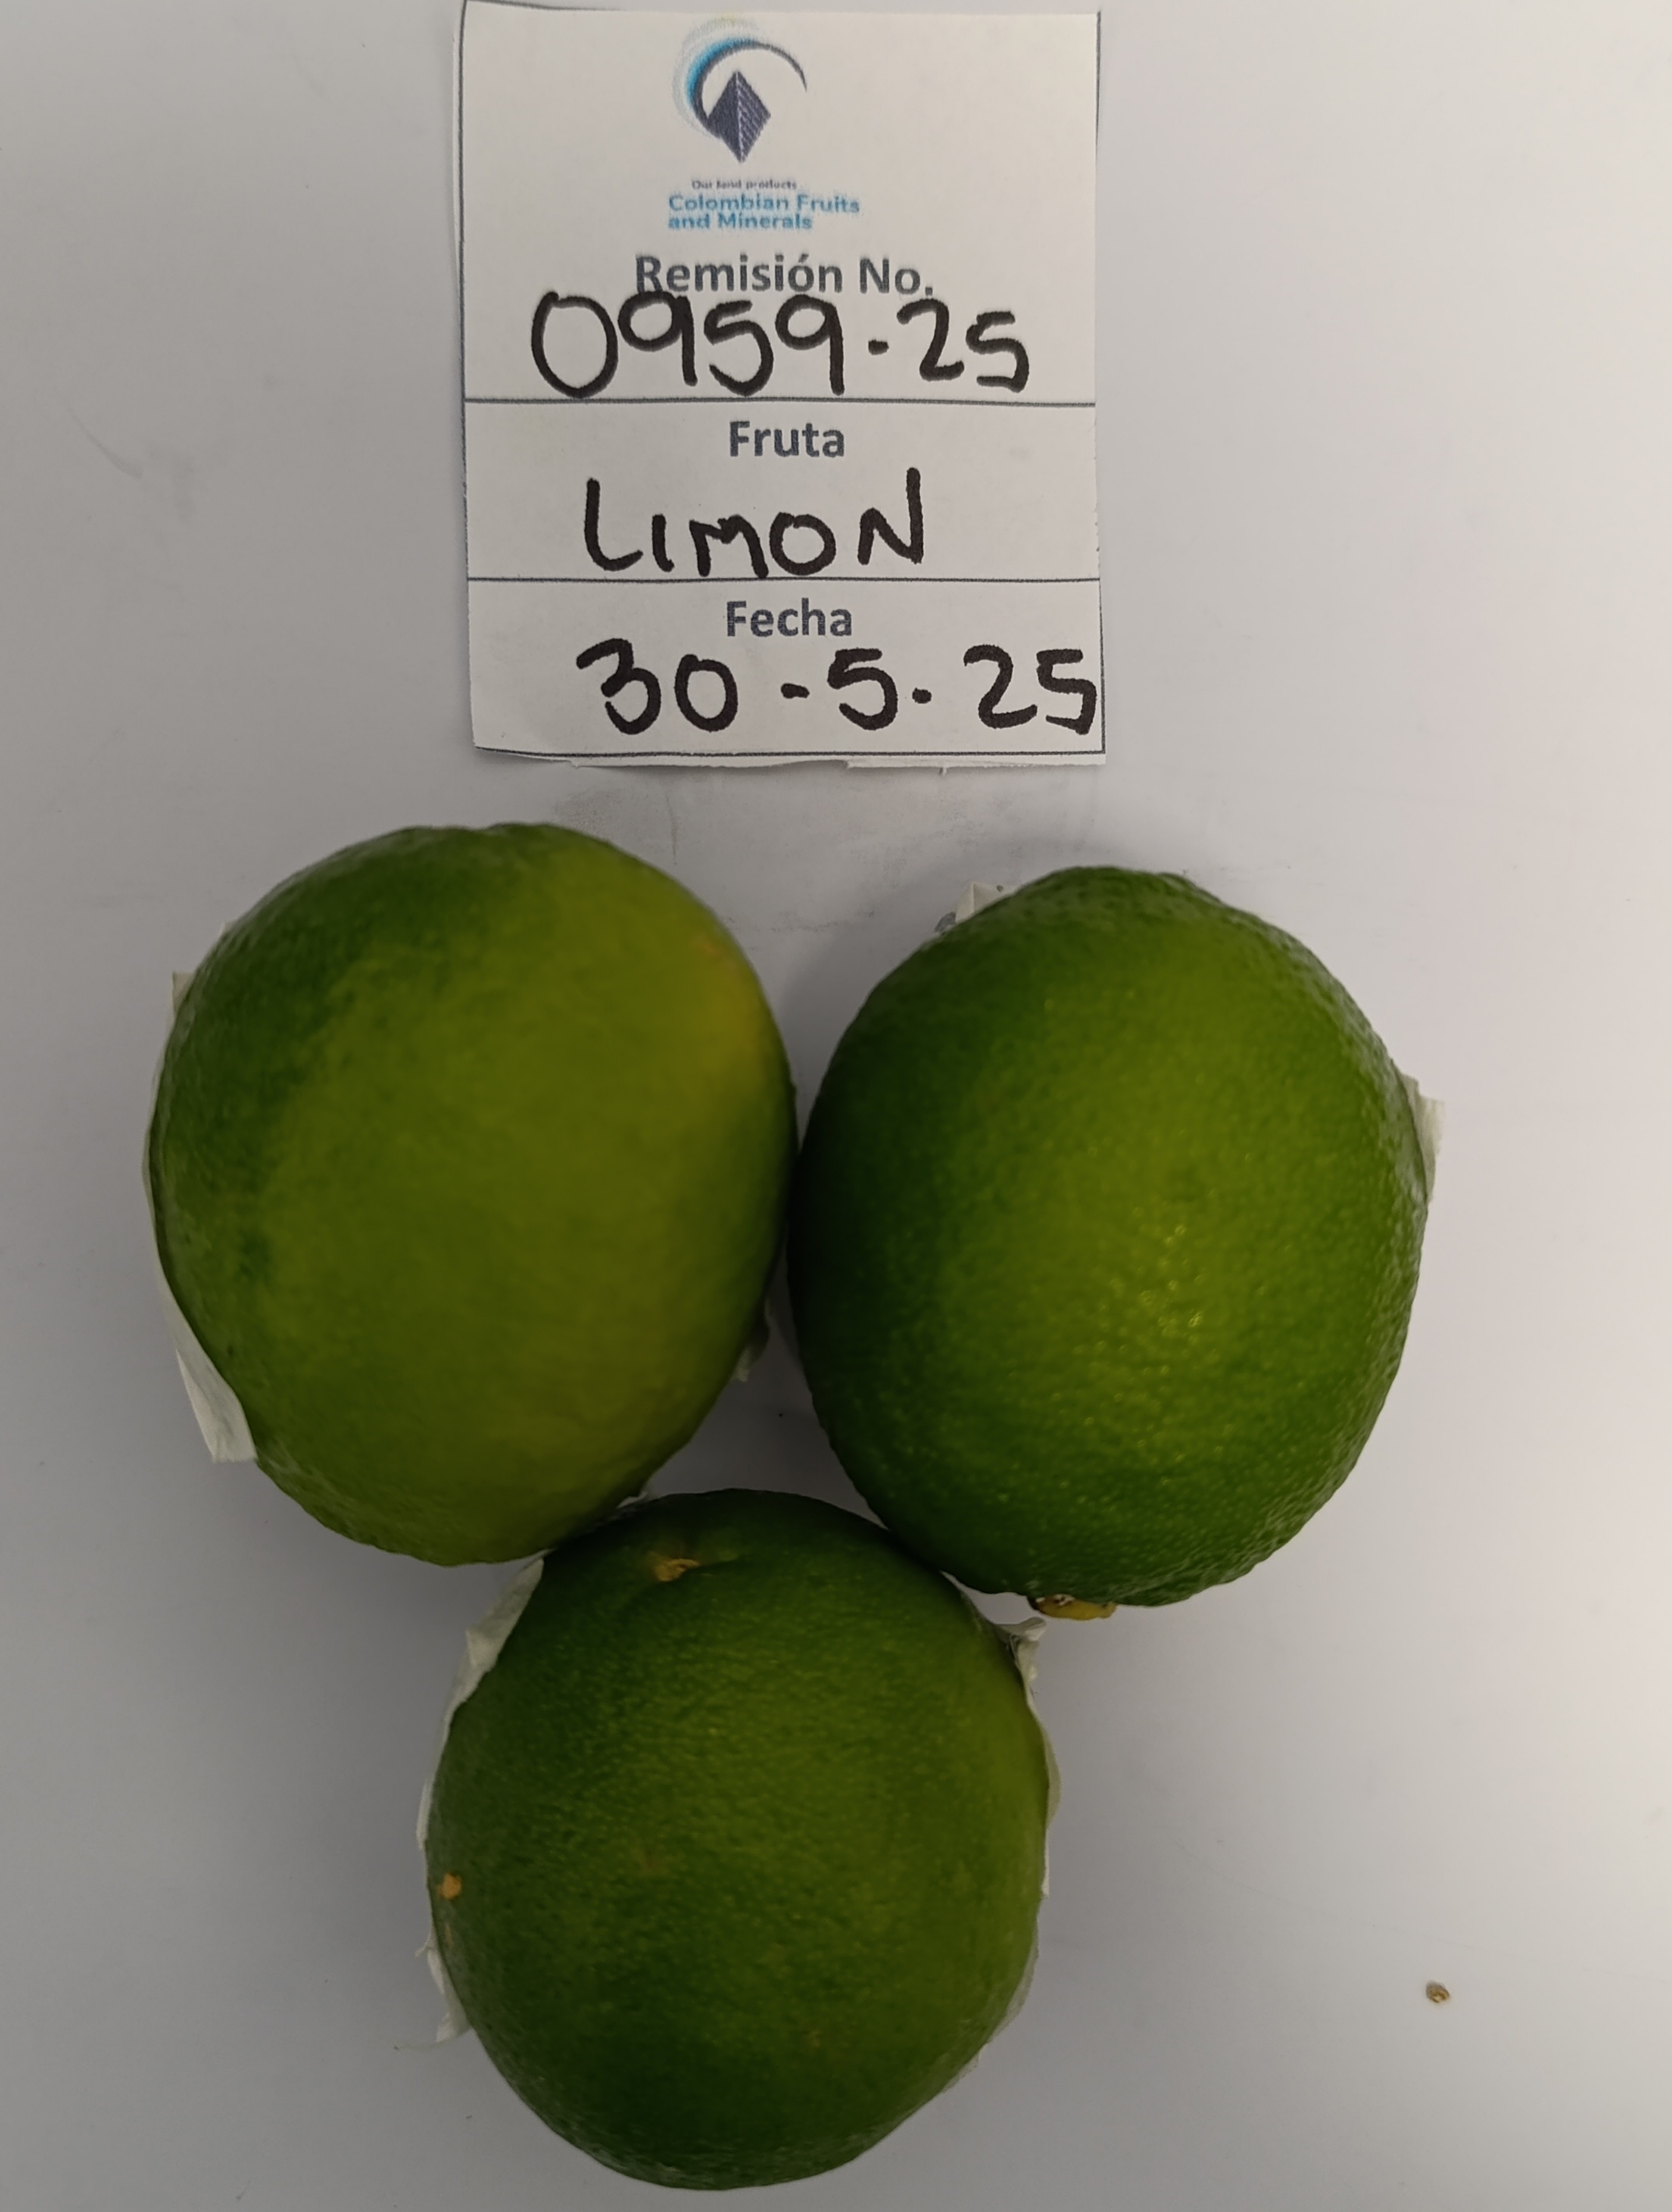 Our land products
Colombian Fruits
and Minerals
Remisión No.
0959-25
Fruta
LIMON
Fecha
30-5-25